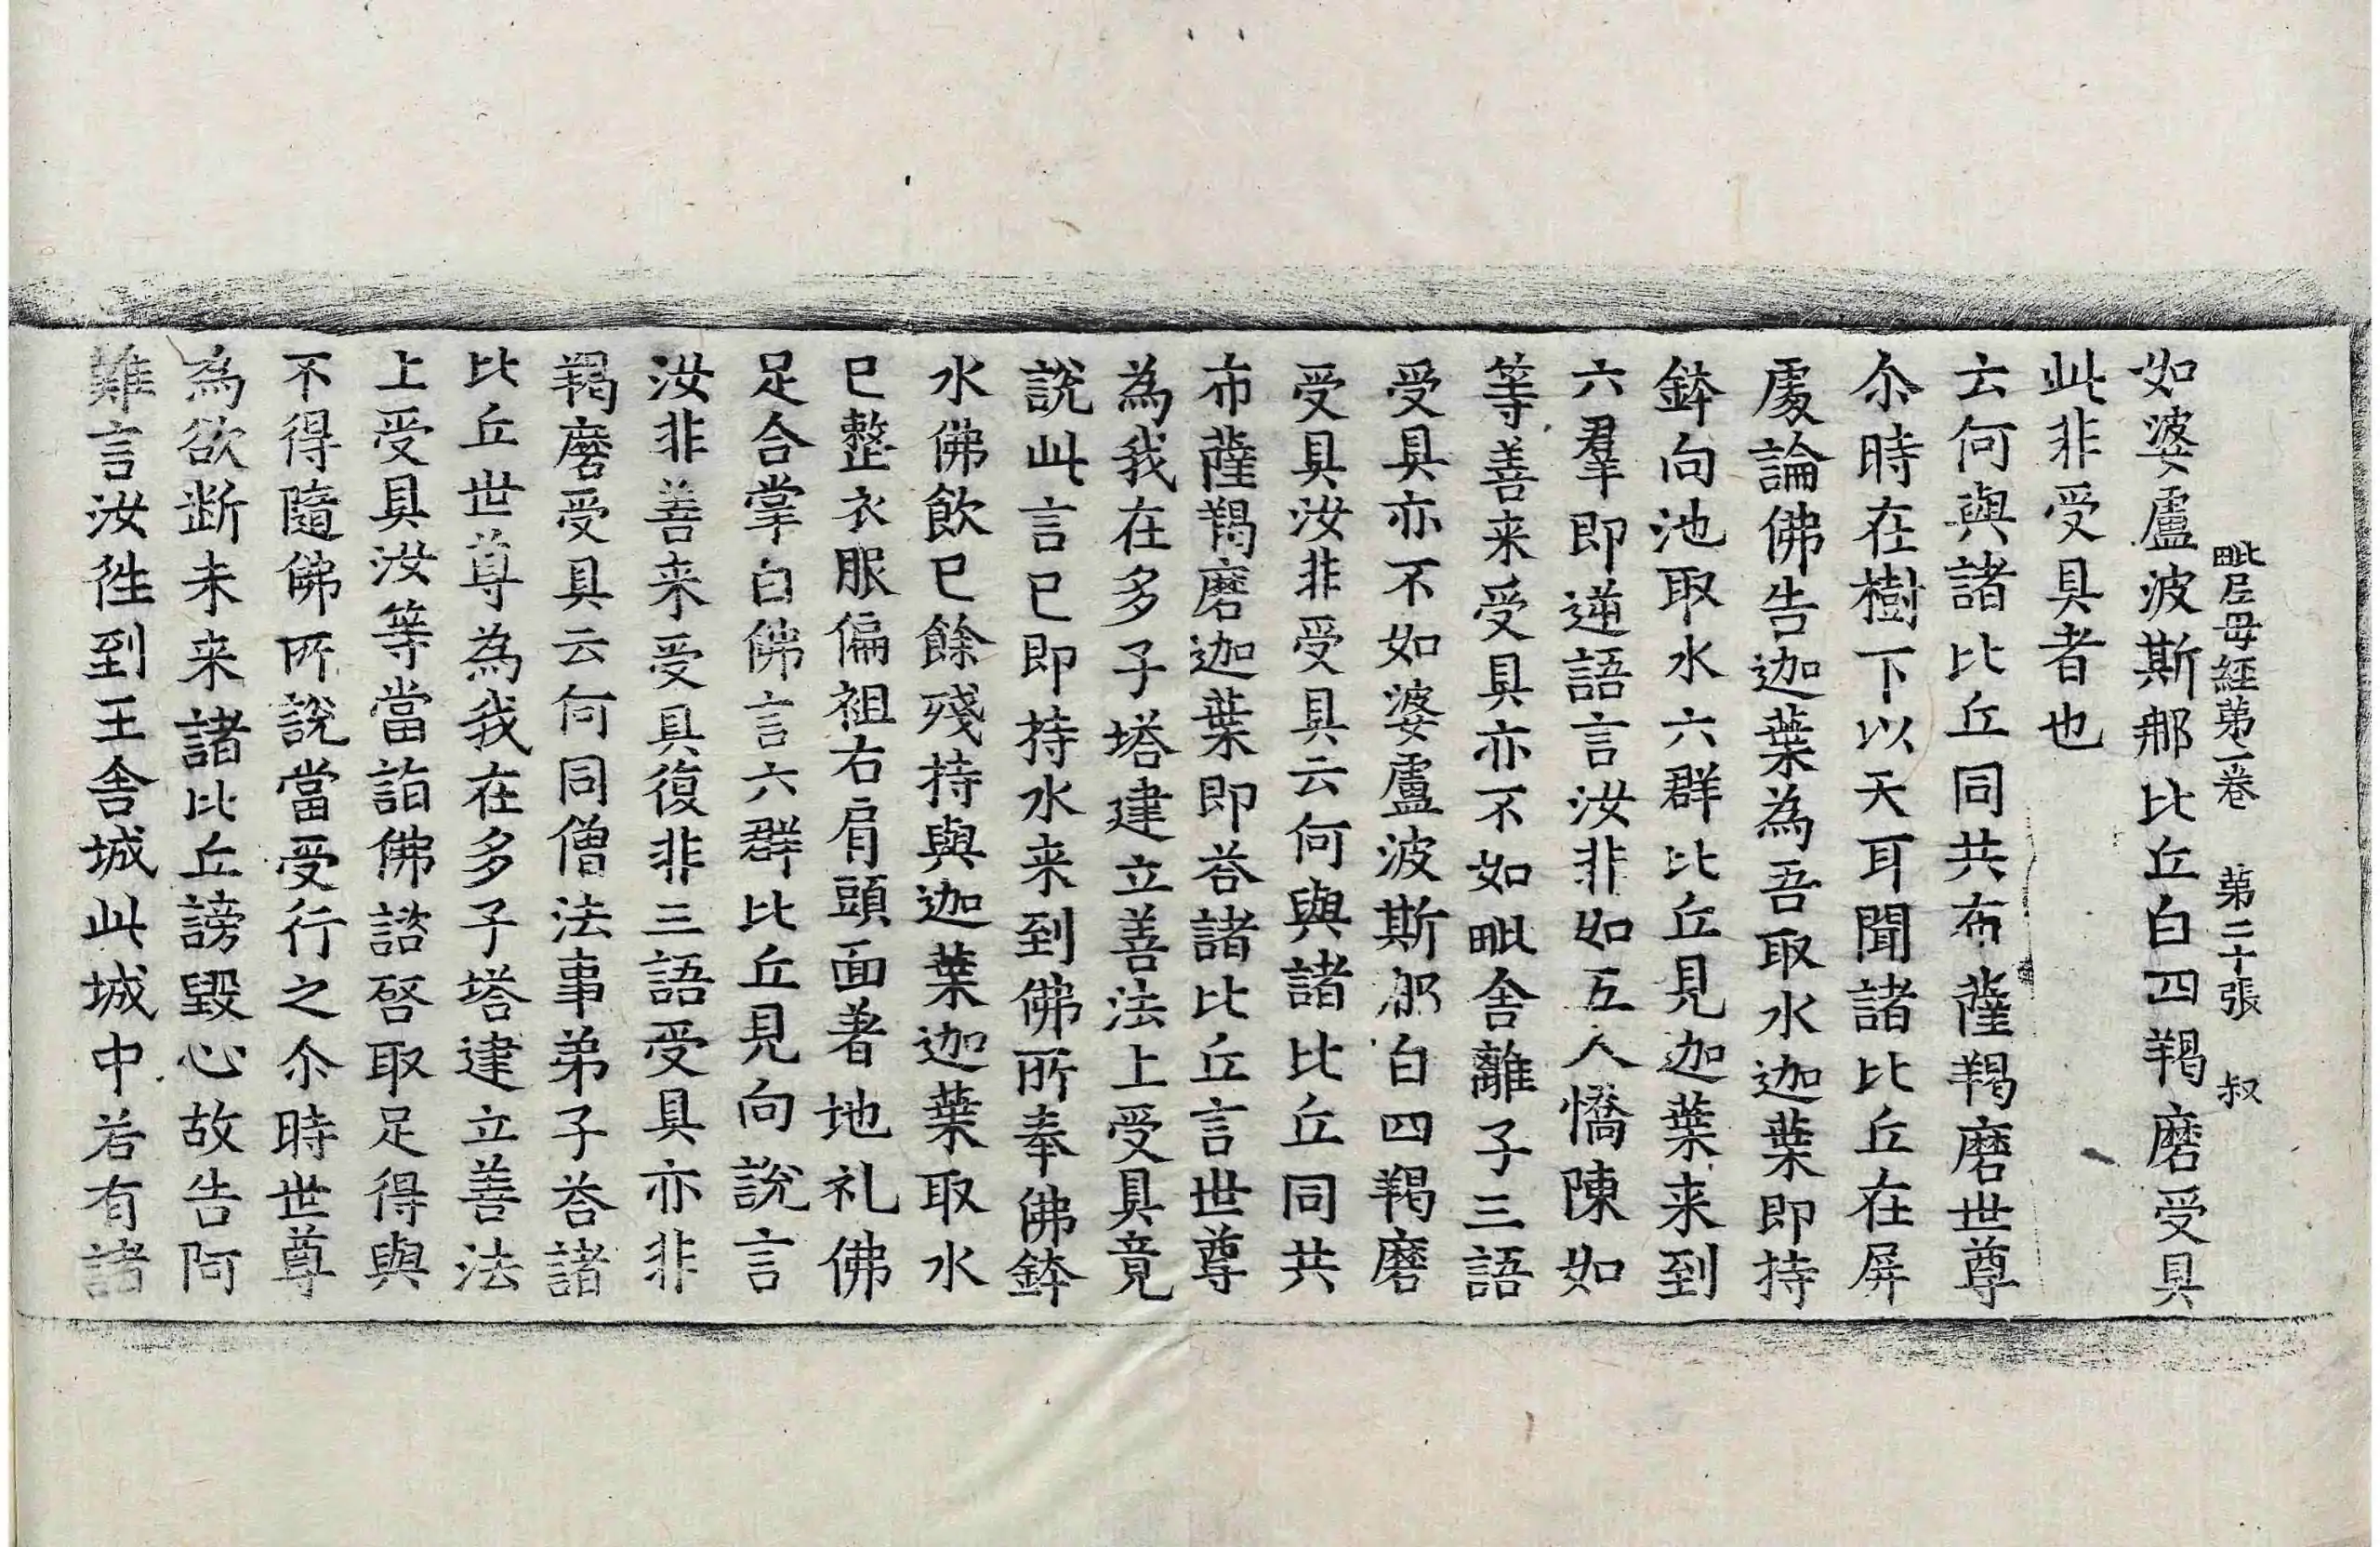 毗尼母經第一卷 第二十張 叔
如婆盧波斯那比丘白四羯磨受具
此非受具者也
云何與諸比丘同共布薩羯磨世尊
尒時在樹下以天耳聞諸比丘在屏
處論佛告迦葉為吾取水迦葉即持
鉢向池取水六群比丘見迦葉来到
六羣即逆語言汝非如五人憍陳如
等善来受具亦不如毗舍離子三語
受具亦不如婆盧波斯那白四羯磨
受具汝非受具云何與諸比丘同共
布薩羯磨迦葉即荅諸比丘言世尊
為我在多子塔建立善法上受具竟
說此言已即持水来到佛所奉佛鉢
水佛飲已餘殘持與迦葉迦葉取水
已整衣服偏袒右肩頭面著地礼佛
足合掌白佛言六群比丘見向說言
汝非善来受具復非三語受具亦非
羯磨受具云何同僧法事弟子荅諸
比丘世尊為我在多子塔建立善法
上受具汝等當詣佛諮啓取足得與
不得隨佛所說當受行之尒時世尊
為欲斷未来諸比丘謗毀心故告阿
難言汝徃到王舍城此城中若有諸